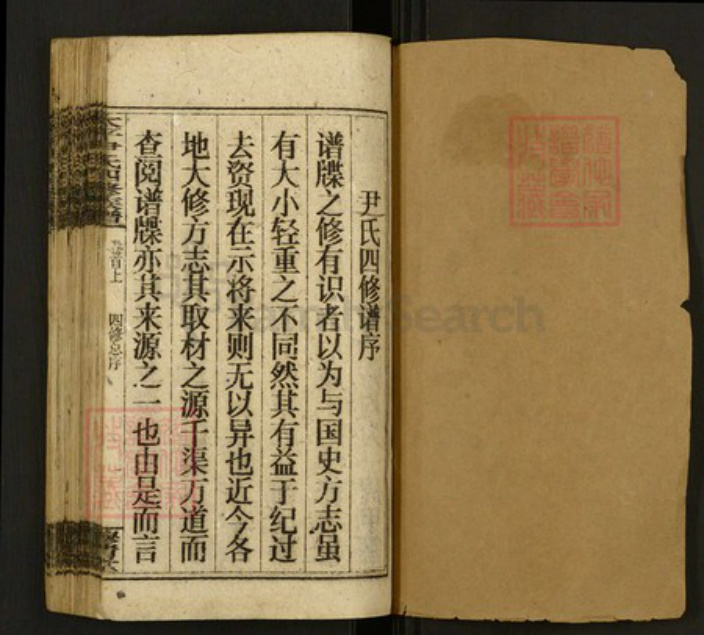 尹氏四修谱序
谱牒之修有识者以为与国史方志虽
有大小轻重之不同然其有益于纪过
去资现在示将来则无以异也近今各
地大修方志其取材之源千渠万道而
查阅谱牒亦其来源之一也由是而言
卷首上
四修总序
Search